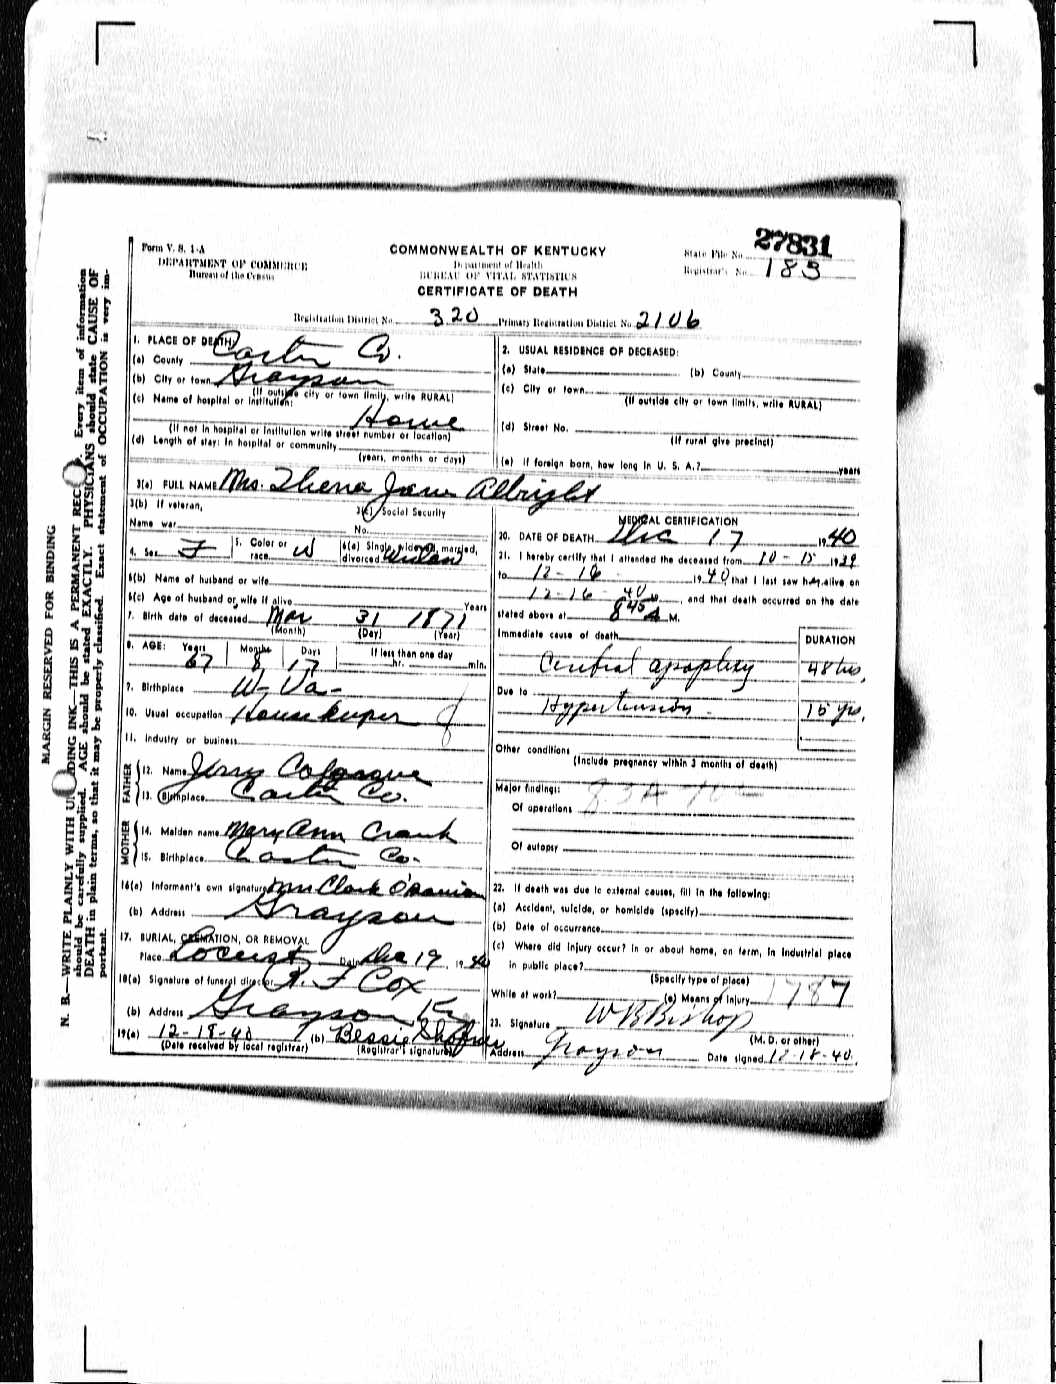 27831
Form V. S. 1-A
DEPARTMENT OF COMMERCE
Bureau of the Census
COMMONWEALTH OF KENTUCKY
Department of Health
BUREAU OF VITAL STATISTICS
CERTIFICATE OF DEATH
State File No.
Registrar's No. 183
Registration District No. 320 Primary Registration District No. 2106
MARGIN RESERVED FOR BINDING
N. B.—WRITE PLAINLY WITH INK—THIS IS A PERMANENT Every item of information
should be carefully supplied. AGE should be stated EXACTLY. PHYSICIANS should state CAUSE OF
DEATH in plain terms, so that it may be properly classified. Exact statement of OCCUPATION is very im-
portant.
1. PLACE OF DEATH:
(a) County Carter Co.
(b) City or town Grayson
(If outside city or town limits, write RURAL)
(c) Name of hospital or institution:
Home
(If not in hospital or institution write street number or location)
(d) Length of stay: In hospital or community
(years, months or days)
2. USUAL RESIDENCE OF DECEASED:
(a) State (b) County
(c) City or town
(If outside city or town limits, write RURAL)
(d) Street No.
(If rural give precinct)
(e) If foreign born, how long in U. S. A.? years
3(a) FULL NAME Mrs. Jane Albright
3(b) If veteran,
Name war
3(c) Social Security
No.
4. Sex F 5. Color or race W 6(a) Single, widowed, married, divorced Widow
6(b) Name of husband or wife
6(c) Age of husband or wife if alive Years
7. Birth date of deceased Mar 31 1871
(Month) (Day) (Year)
8. AGE: Years Months Days If less than one day
67 8 17 hr. min.
9. Birthplace W-Va-
10. Usual occupation Housekeeper
11. Industry or business
FATHER
12. Name Jerry
13. Birthplace Carter Co.
MOTHER
14. Maiden name Mary Ann Crank
15. Birthplace Carter Co.
16(a) Informant's own signature Mrs Clark
(b) Address Grayson
17. BURIAL, CREMATION, OR REMOVAL
Place Locust Date Dec 19, 1940
18(a) Signature of funeral director R. F Cox
(b) Address Grayson Ky
19(a) 12-18-40 (b) Bessie
(Date received by local registrar) (Registrar's signature)
MEDICAL CERTIFICATION
20. DATE OF DEATH Dec 17 1940
21. I hereby certify that I attended the deceased from 10-15 1939
to 12-16 1940, that I last saw her alive on
12-16 40, and that death occurred on the date
stated above at 845 A M.
Immediate cause of death DURATION
apoplexy 48 hrs,
Due to
Hypertension 15 yrs.
Other conditions
(Include pregnancy within 3 months of death)
Major findings:
Of operations
Of autopsy
22. If death was due to external causes, fill in the following:
(a) Accident, suicide, or homicide (specify)
(b) Date of occurrence
(c) Where did injury occur? in or about home, on farm, in industrial place
in public place?
(Specify type of place)
While at work? (e) Means of Injury 1787
23. Signature W B Bishop
(M. D. or other)
Address Grayson Date signed 12-18-40.